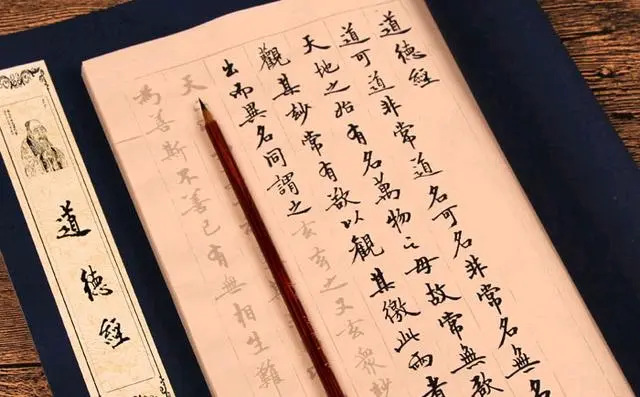 道德經
道可道非常道名可名非常名無名
天地之始有名萬物之母故常無欲
觀其玅常有欲以觀其徼此兩者
出而異名同謂之玄玄之又玄衆玅
天
為善斯不善已有無相生難
道德經